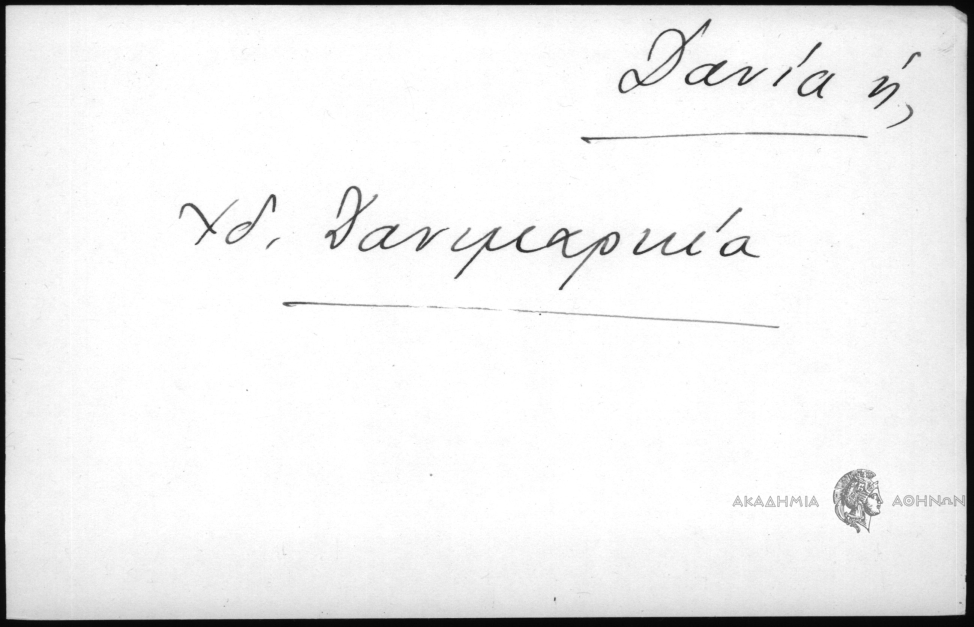 Δανία ἡ,
χδ. Δανιμαρκία
ΑΚΑΔΗΜΙΑ ΑΘΗΝΩΝ